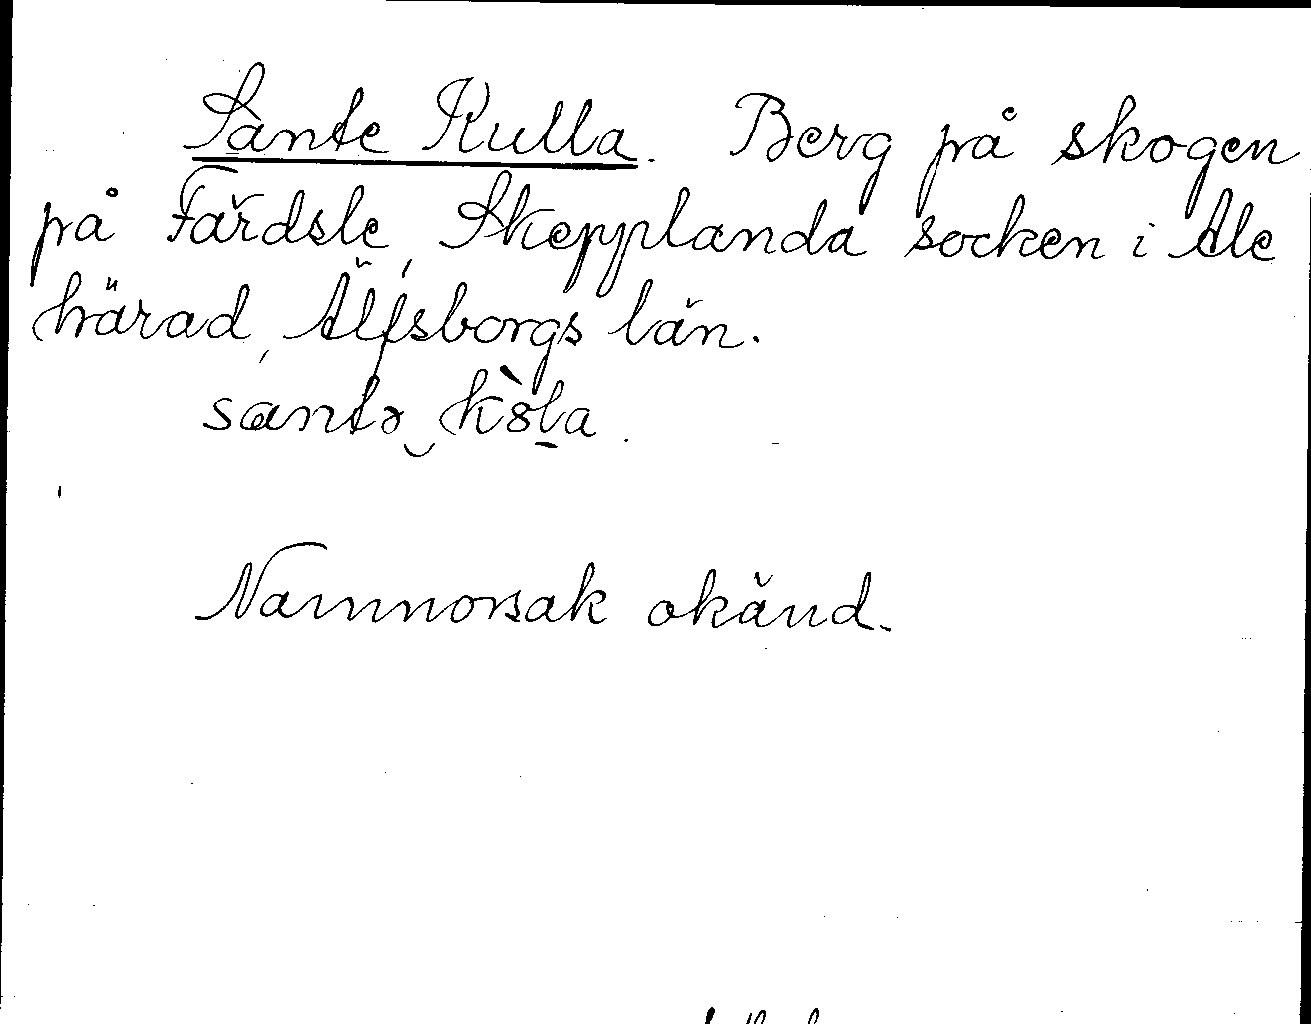 Sante Kulla. Berg på skogen
på Färdsle, Skepplanda socken i Ale
härad, Älfsborgs län.
santə k
Namnorsak okänd.